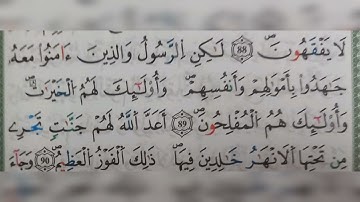 لَا يَفْقَهُونَ ۝٨٨ لَٰكِنِ اِ۬لرَّسُولُ وَالذِينَ ءَامَنُوا مَعَهُ
جَٰهَدُوا بِأَمْوَٰلِهِمْ وَأَنفُسِهِمْ وَأُوْلَٰٓئِكَ لَهُمُ الْخَيْرَٰتُ
وَأُوْلَٰٓئِكَ هُمُ الْمُفْلِحُونَ ۝٨٩ أَعَدَّ اللَّهُ لَهُمْ جَنَّٰتٍ تَجْرِے
مِن تَحْتِهَا الْأَنْهَٰرُ خَٰلِدِينَ فِيهَا ذَٰلِكَ الْفَوْزُ الْعَظِيمُ ۝٩٠ وَجَآءَ